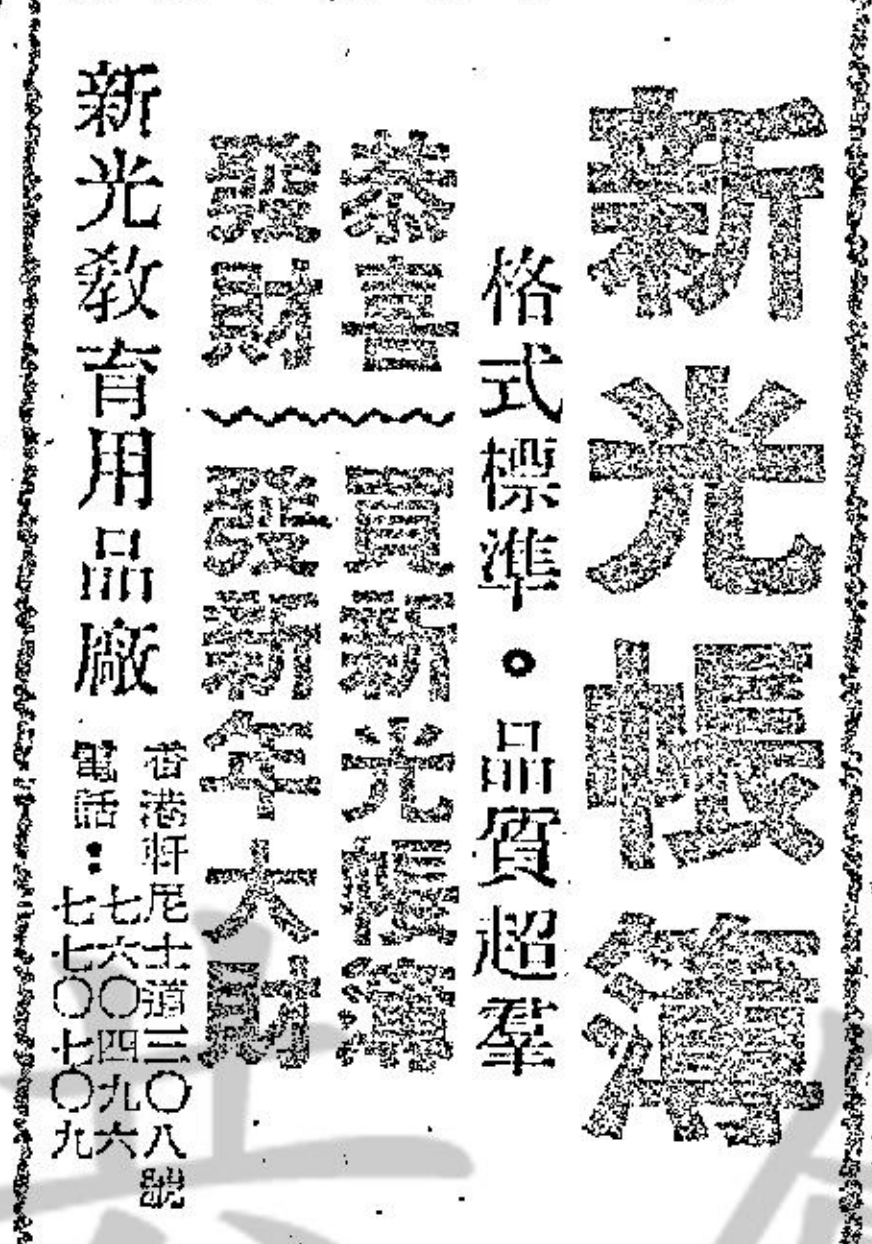 新光帳簿
格式標準。品質超羣
恭喜
發財
買新光帳簿
發新年大財
新光教育用品廠
香港軒尼士道三〇八號
電話：七六〇四九六
七七〇七〇九